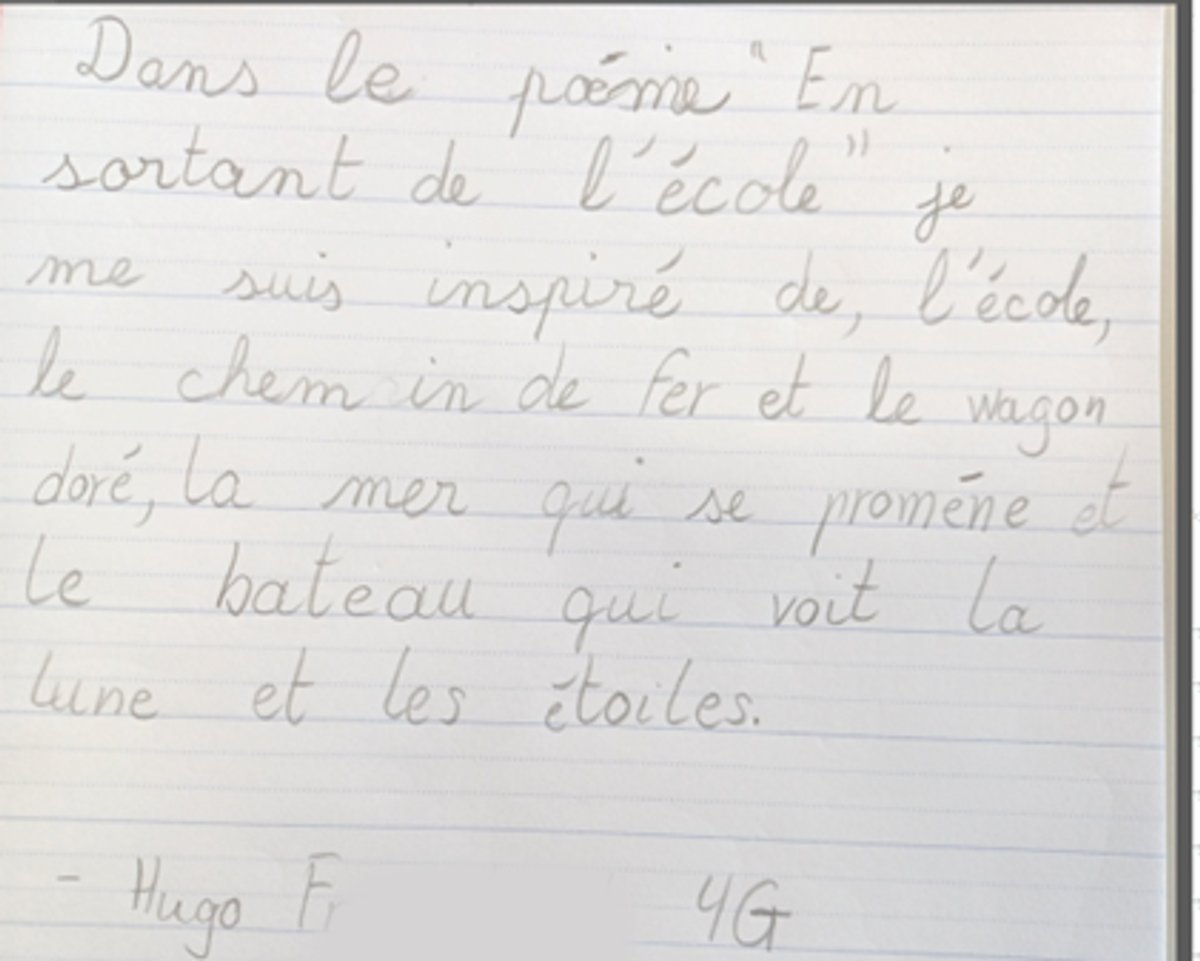 Dans le poéme "En
sortant de l'école" je
me suis inspiré de, l'école,
le chemin de fer et le wagon
doré, la mer qui se proméne et
le bateau qui voit la
lune et les étoiles.
- Hugo Fr
4G